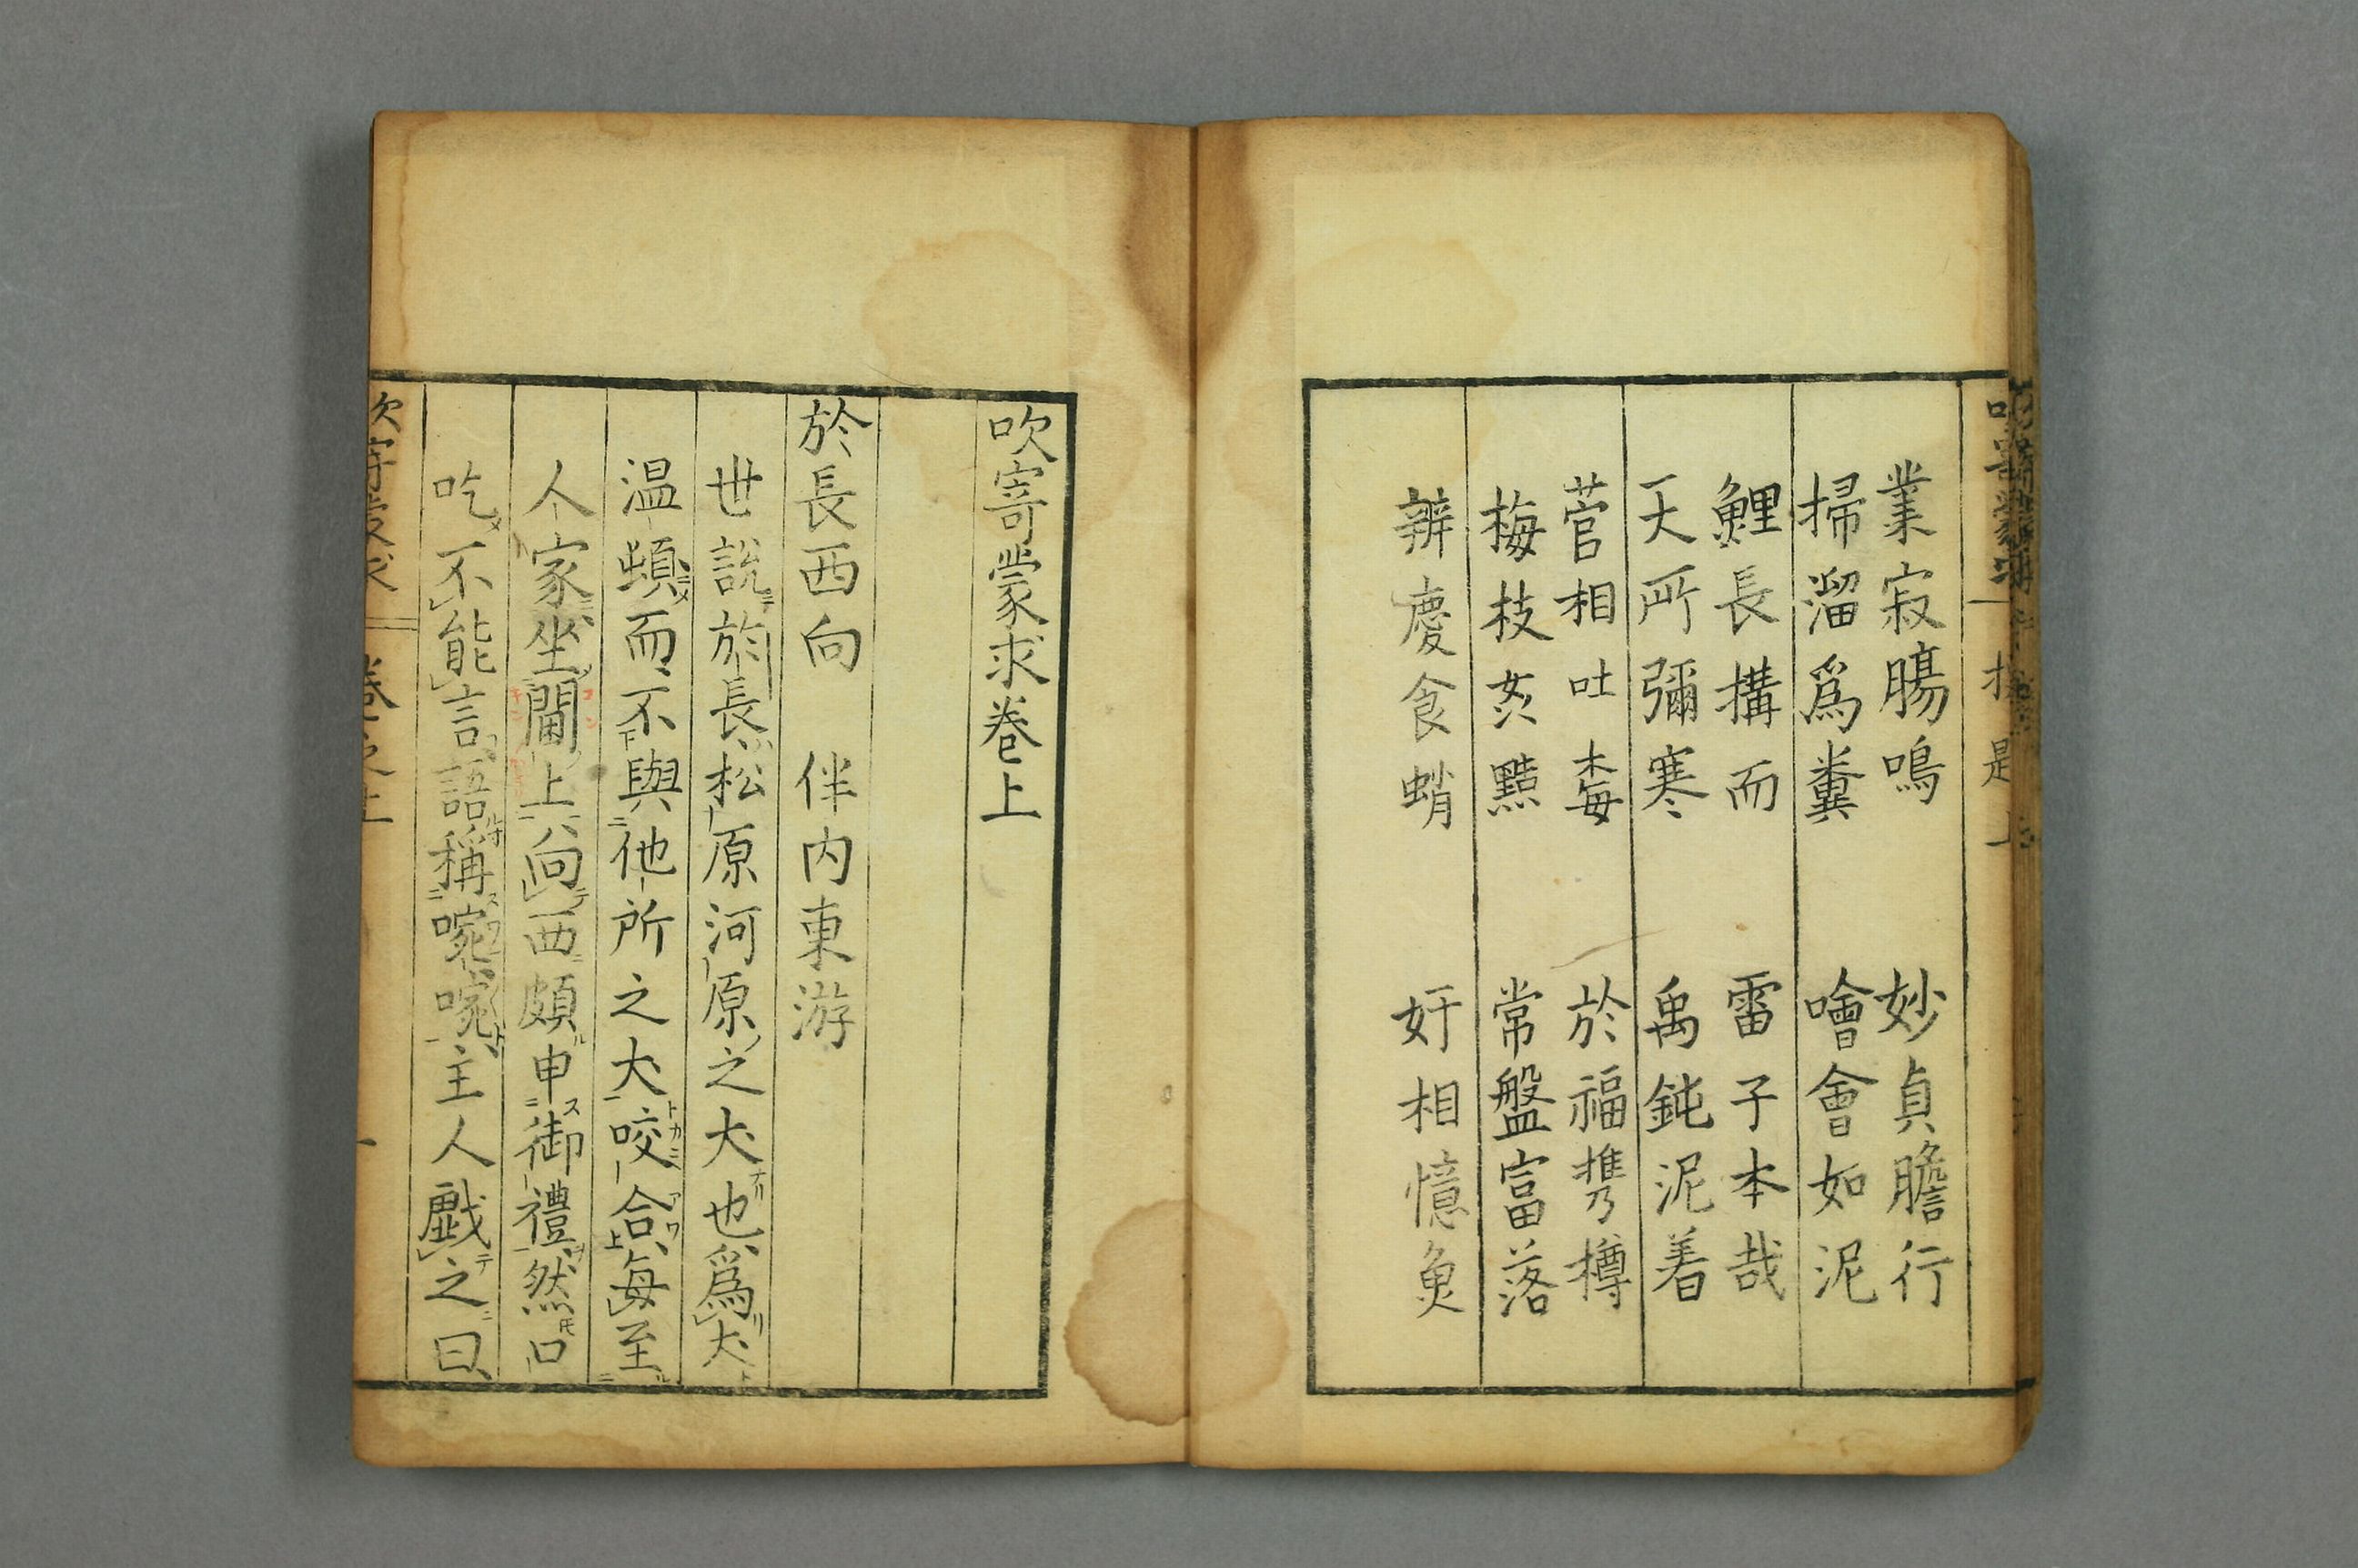 業寂腸鳴　妙貞膽行
掃溜爲糞　噲會如泥
鯉長構而　雷子本哉
天所彌寒　禹鈍泥着
菅相吐毒　於福携樽
梅枝亥黠　常盤富落
辨慶食蛸　奸相憶魚
吹寄蒙求卷上
於長西向　伴内東游
世説於長松原河原之犬也爲犬
温順而不與他所之犬咬合毎至
人家坐閫上向西頗申御禮然口
吃不能言語稱啘啘主人戲之曰
吹寄蒙求　卷之上　一